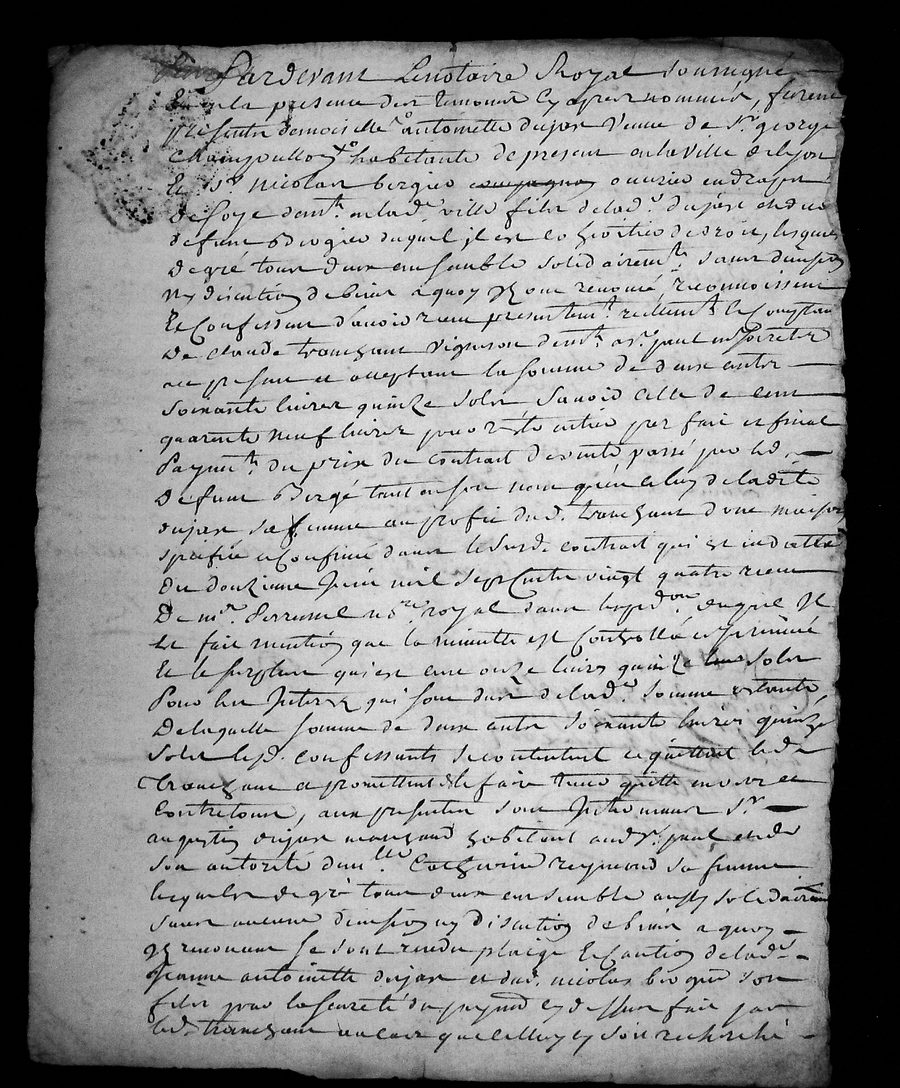 Pardevant Lenotaire Royal soussigné
Et en la presence des temoins cy apres nommés, furent
presents demoiselle antoinette dujast Veuve de Sr. george
habitante de present en la ville de lyon
Et Sr. nicolas bergier ouvrier en draps
de soye demt. en lad. ville fils de lad. dujast et de
defunt Bergier duquel il est heritier de droit, lesquels
De gré tous deux ensemble solidairemt. sans division
ny discution de biens a quoy ils ont renoncé reconnoissent
Et Confessent d'avoir receu presentemt. reellemt. et Comptant
De claude tranchant vigneron demt. a st. paul en
ace present et acceptant la somme de deux cents
soixante livres quinze sols Savoir celle de cent
quarante neuf livres pour reste entier parfait et final
payemt. du prix du contrat de vente passé par led.
Defunt Bergé tant en son nom qu'en celuy de ladite
dujast sa femme au profit dud. tranchant d'une maison
spécifiée et Confinée dans le susd. contrat qui est en datte
Du douzieme Juin mil sept cents vingt quatre receu
De me. Perrussel nore. royal dans lexpedon. duquel Il
Est fait mention que la minutte est Controllée et
Et le surplus qui est cent onze livres quinze sols
Pour les Interets qui sont dus de lad. somme restante,
De laquelle somme de deux cents soixante livres quinze
Sols lesd. confessants se contentent et quittent led.
tranchant et promettent le faire tenir quitte envers et
Contre tous, aux presentes sont Intervenus Sr.
augustin dujast marchand habitant aud. st. paul et de
son autorité demlle. Catherine reymond sa femme
lesquels de gré tous deux ensemble aussy solidairemt.
sans aucune division ny discution de biens a quoy
Ils renoncent se sont rendu pleige et Caution de lad.
Jeanne antoinette dujast et dud. nicolas bergier son
fils pour la seureté du payemt. cy dessus fait par
led. tranchant au cas que celluy cy soit recherché